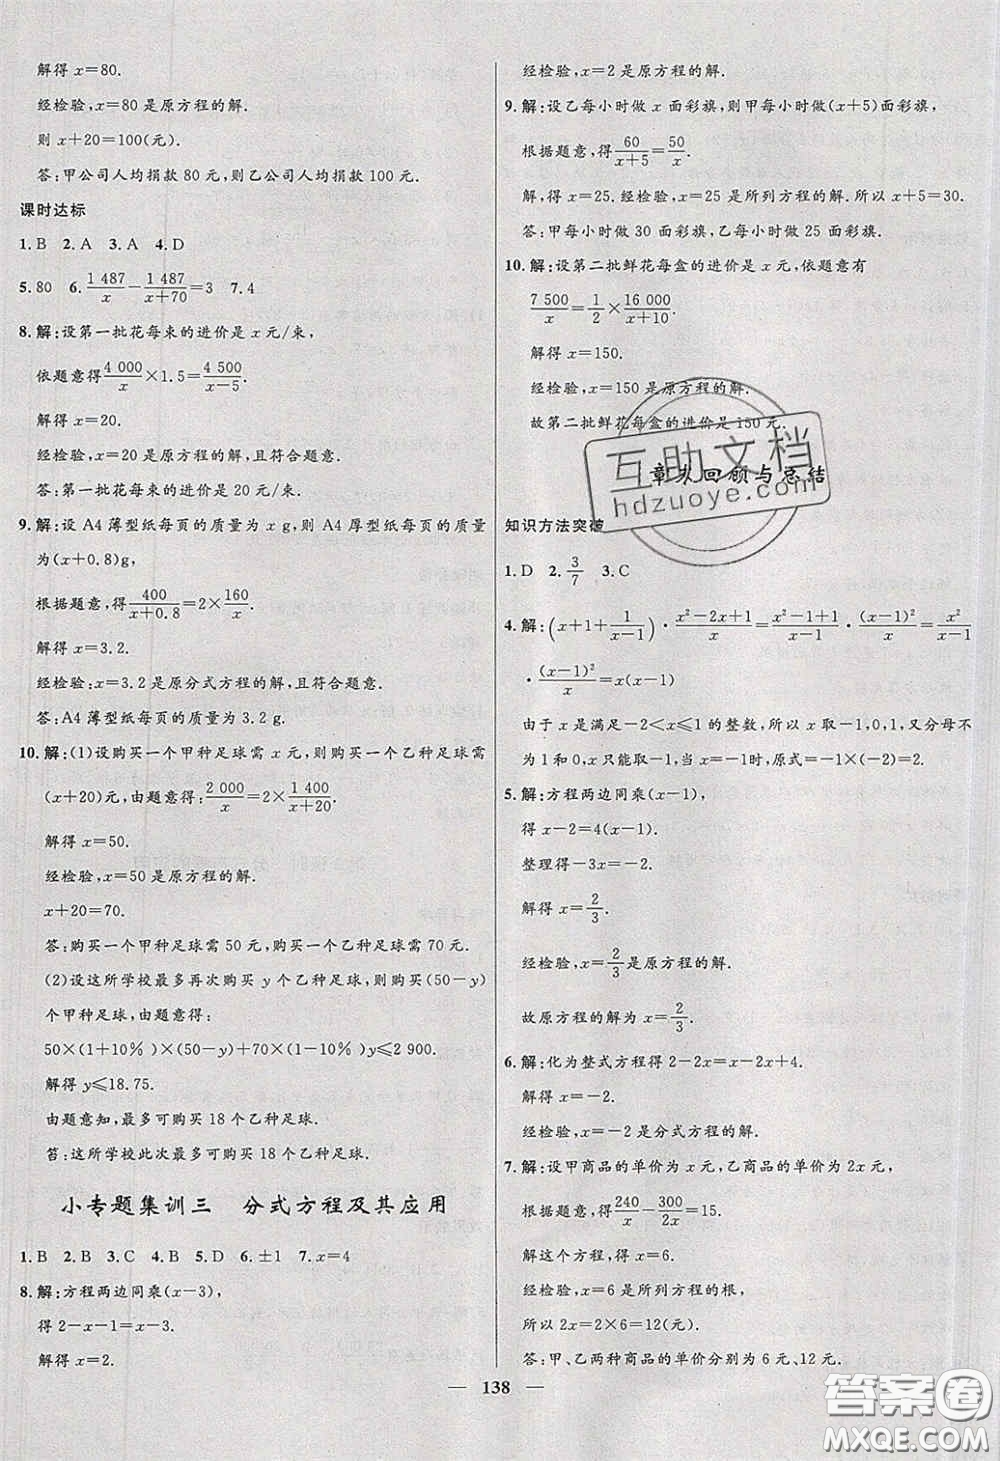 解得 x=80.
经检验,x=80 是原方程的解.
则 x+20=100(元).
答:甲公司人均捐款 80 元,则乙公司人均捐款 100 元.
课时达标
1.B 2.A 3.A 4.D
5.80 6.1 487/x-1 487/(x+70)=3 7.4
8.解:设第一批花每束的进价是 x 元/束,
依题意得4 000/x×1.5=4 500/(x-5).
解得 x=20.
经检验,x=20 是原方程的解,且符合题意.
答:第一批花每束的进价是 20 元/束.
9.解:设 A4 薄型纸每页的质量为 x g,则 A4 厚型纸每页的质量
为(x+0.8)g,
根据题意,得400/(x+0.8)=2×160/x.
解得 x=3.2.
经检验:x=3.2 是原分式方程的解,且符合题意.
答:A4 薄型纸每页的质量为 3.2 g.
10.解:(1)设购买一个甲种足球需 x 元,则购买一个乙种足球需
(x+20)元,由题意得:2 000/x=2×1 400/(x+20).
解得 x=50.
经检验,x=50 是原方程的解.
x+20=70.
答:购买一个甲种足球需 50 元,购买一个乙种足球需 70 元.
(2)设这所学校最多再次购买 y 个乙种足球,则购买(50-y)
个甲种足球,由题意得:
50×(1+10%)×(50-y)+70×(1-10%)y≤2 900.
解得 y≤18.75.
由题意知,最多可购买 18 个乙种足球.
答:这所学校此次最多可购买 18 个乙种足球.
小专题集训三 分式方程及其应用
1.B 2.B 3.C 4.B 5.D 6.±1 7.x=4
8.解:方程两边同乘(x-3),
得 2-x-1=x-3.
解得 x=2.
经检验,x=2 是原方程的解.
9.解:设乙每小时做 x 面彩旗,则甲每小时做(x+5)面彩旗,
根据题意,得60/(x+5)=50/x.
解,得 x=25.经检验,x=25 是所列方程的解.所以 x+5=30.
答:甲每小时做 30 面彩旗,乙每小时做 25 面彩旗.
10.解:设第二批鲜花每盒的进价是 x 元,依题意有
7 500/x=1/2×16 000/(x+10).
解得 x=150.
经检验,x=150 是原方程的解.
故第二批鲜花每盒的进价是 150 元.
互助文档
章末回顾与总结
hdzuoye.com
知识方法突破
1.D 2.3/7 3.C
4.解:(x+1+1/(x-1))·(x²-2x+1)/x=(x²-1+1)/(x-1)·(x-1)²/x=x²/(x-1)
·(x-1)²/x=x(x-1)
由于 x 是满足-2<x≤1 的整数,所以 x 取-1,0,1,又分母不
为 1 和 0,x 只能取-1,当 x=-1时,原式=-1(-2)=2.
5.解:方程两边同乘(x-1),
得 x-2=4(x-1).
整理得-3x=-2.
解得 x=2/3.
经检验,x=2/3是原方程的解.
故原方程的解为 x=2/3.
6.解:化为整式方程得 2-2x=x-2x+4.
解得 x=-2.
经检验,x=-2 是分式方程的解.
7.解:设甲商品的单价为 x 元,乙商品的单价为 2x 元,
根据题意,得240/x-300/2x=15.
解这个方程,得 x=6.
经检验,x=6 是所列方程的根,
所以 2x=2×6=12(元).
答:甲、乙两种商品的单价分别为 6 元、12 元.
138
答案圈
MXQE.COM